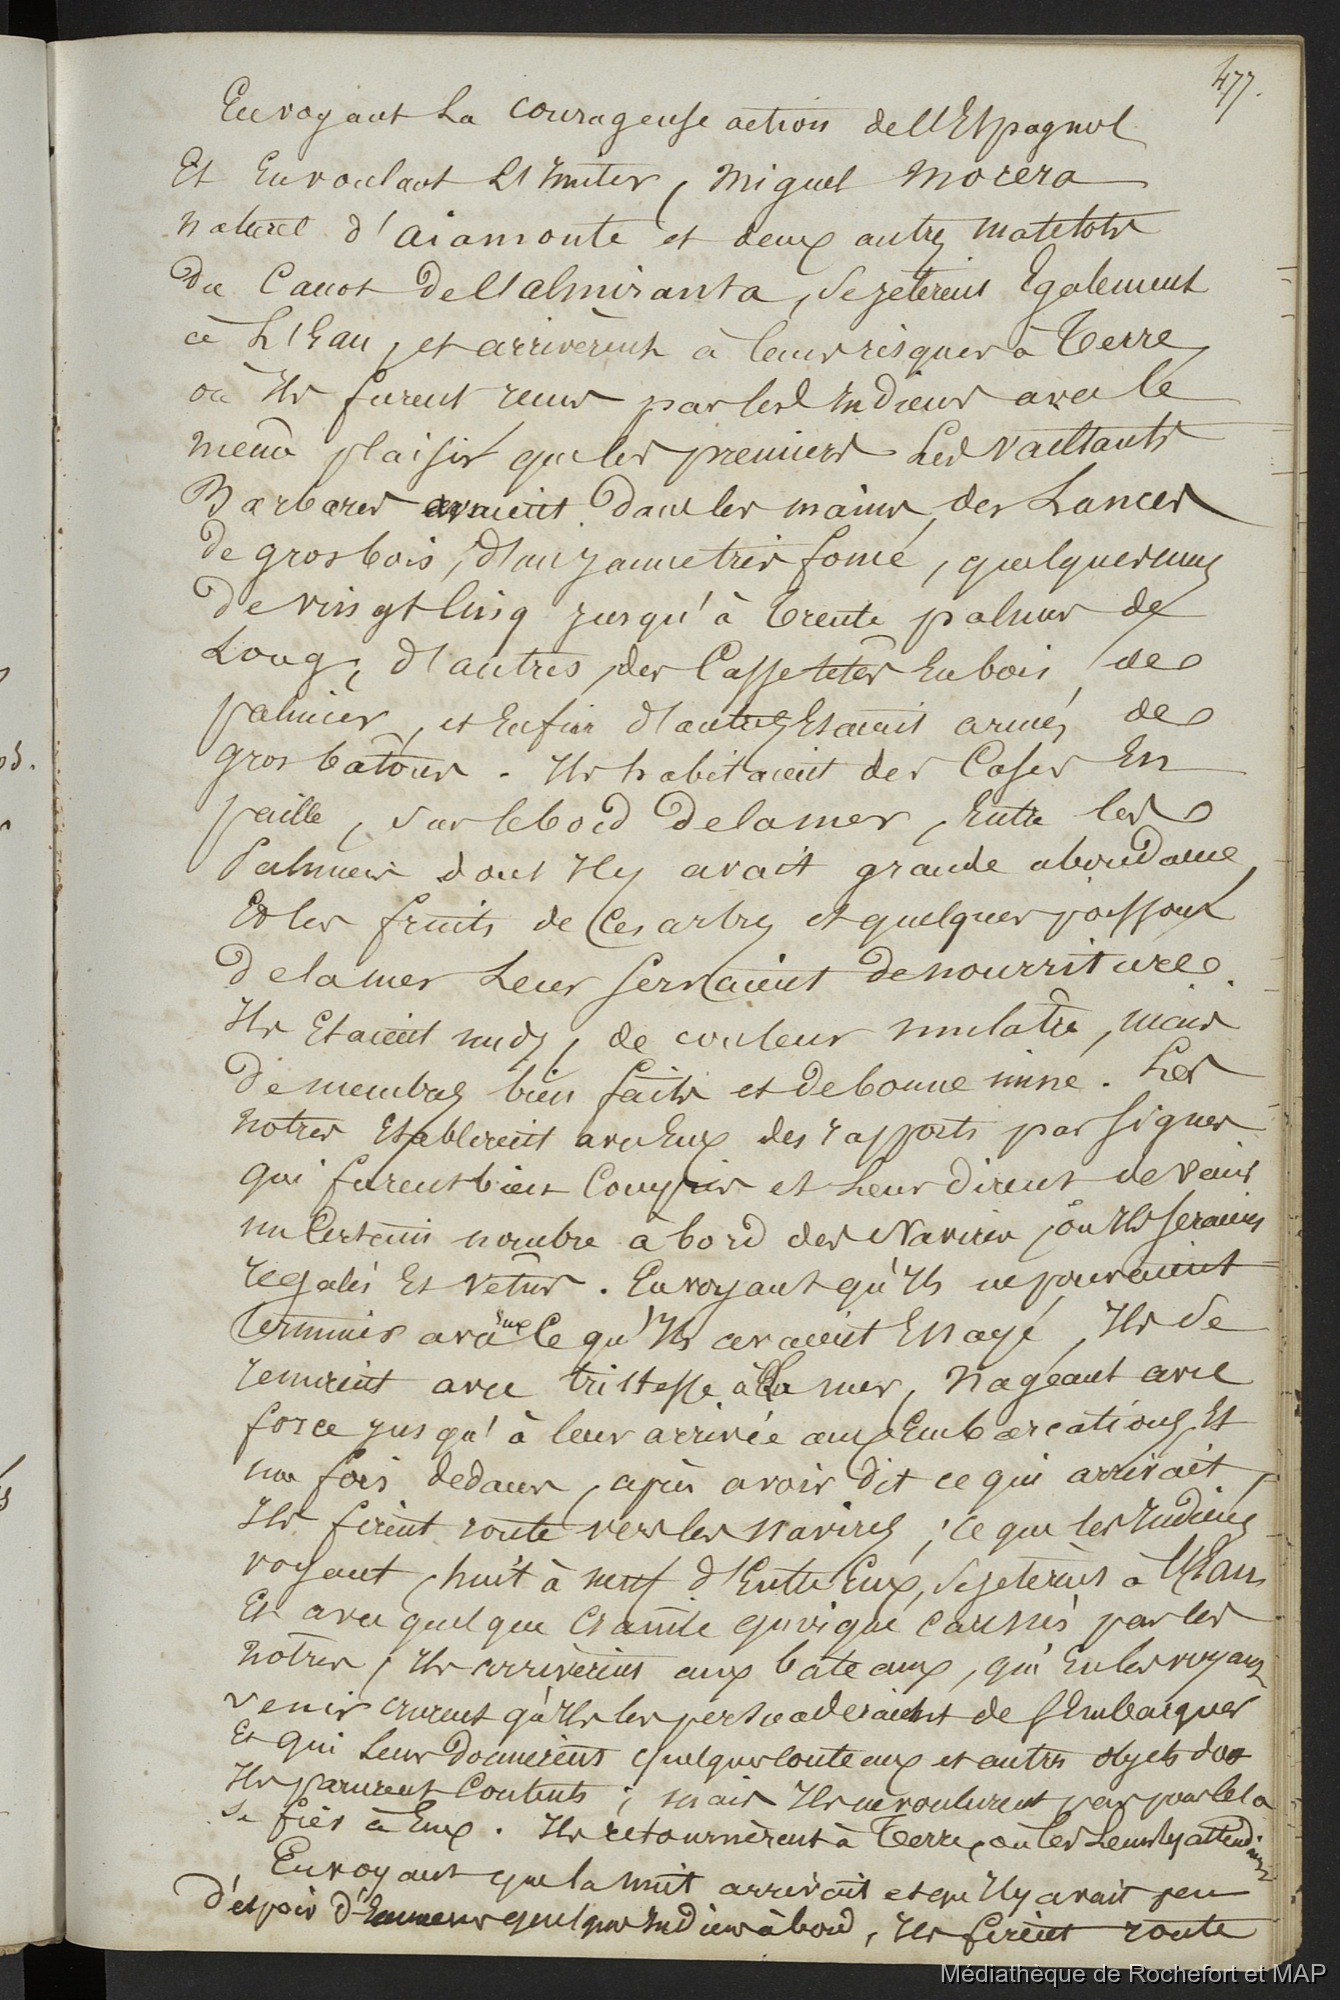 477.
En voyant La courageuse action de l'Espagnol
Et En voulant L'Imiter, Miguel Morera
naturel d'aiamonte et deux autres matelots
Du Canot De l'almiranta, se jeterent Egalement
à L'Eau, et arrivèrent à leurs risques à Terre,
où Ils furent reçus par les Indiens avec le
même plaisir que les premiers. Les vaillants
Barbares avaient Dans les mains, des Lances
De gros bois, d'un jaune très foncé, quelques unes
De vingt Cinq jusqu'à Trente palmes de
Long, d'autres, des Casse têtes En bois de
palmier, et Enfin d'autres Etaient armés de
gros bâtons. Ils habitaient des Cases En
paille, sur le bord De la mer, Entre les
Palmiers dont Il y avait grande abondance,
Et les fruits de Ces arbres et quelques poissons
De la mer Leur servaient de nourriture.
Ils Etaient nuds, de couleur mulatre, mais
De membres bien faits et de bonne mine. Les
notres Etablirent avec Eux des rapports par signes
qui furent bien Compris et Leur dirent de venir
un Certain nombre à bord des Navires, où Ils seraient
régalés Et vêtus. En voyant qu'Ils ne pouvaient
terminer avec Eux Ce qu'Ils avaient Essayé, Ils se
remirent avec tristesse à La mer, Nageant avec
force jusqu'à leur arrivée aux Embarcations, Et
une fois dedans, après avoir dit ce qui arrivait,
Ils firent route vers les navires; ce que les Indiens
voyant, huit à neuf d'Entre Eux, se jeterent à l'Eau
Et avec quelque Crainte quoique caressés par les
notres, Ils arrivèrent aux bateaux, qui En les voyant
venir crurent qu'Ils les persuaderaient de s'Embarquer
Et qui Leur Donnerent quelques Couteaux et autres objets dont
Ils parurent Contents; mais Ils ne voulurent pas pour Cela
se fier à Eux. Ils retournèrent à Terre, où les Leurs les attendaient
En voyant que la nuit arrivait et qu'Il y avait peu
d'espoir d'Emmener quelques Indiens à bord, Ils firent route
Médiathèque de Rochefort et MAP